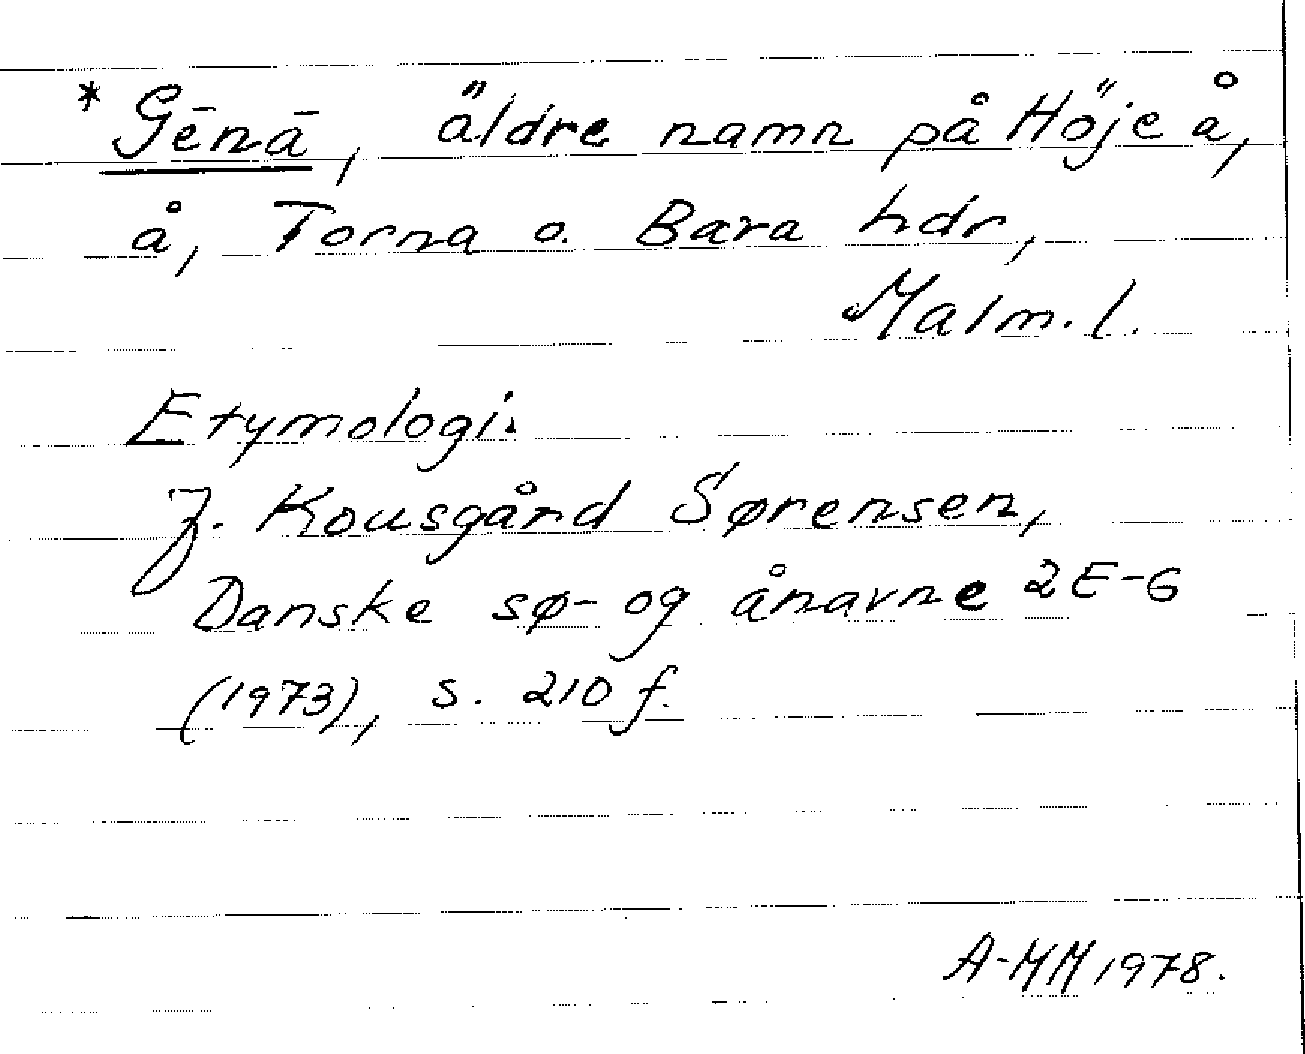 *Gēnā, äldre namn på Höje å,
å, Torna o. Bara hdr,
Malm. l.
Etymologi:
J. Kousgård Sørensen,
Danske sø- og ånavne 2E-G
(1973), s. 210 f.
A-MM 1978.